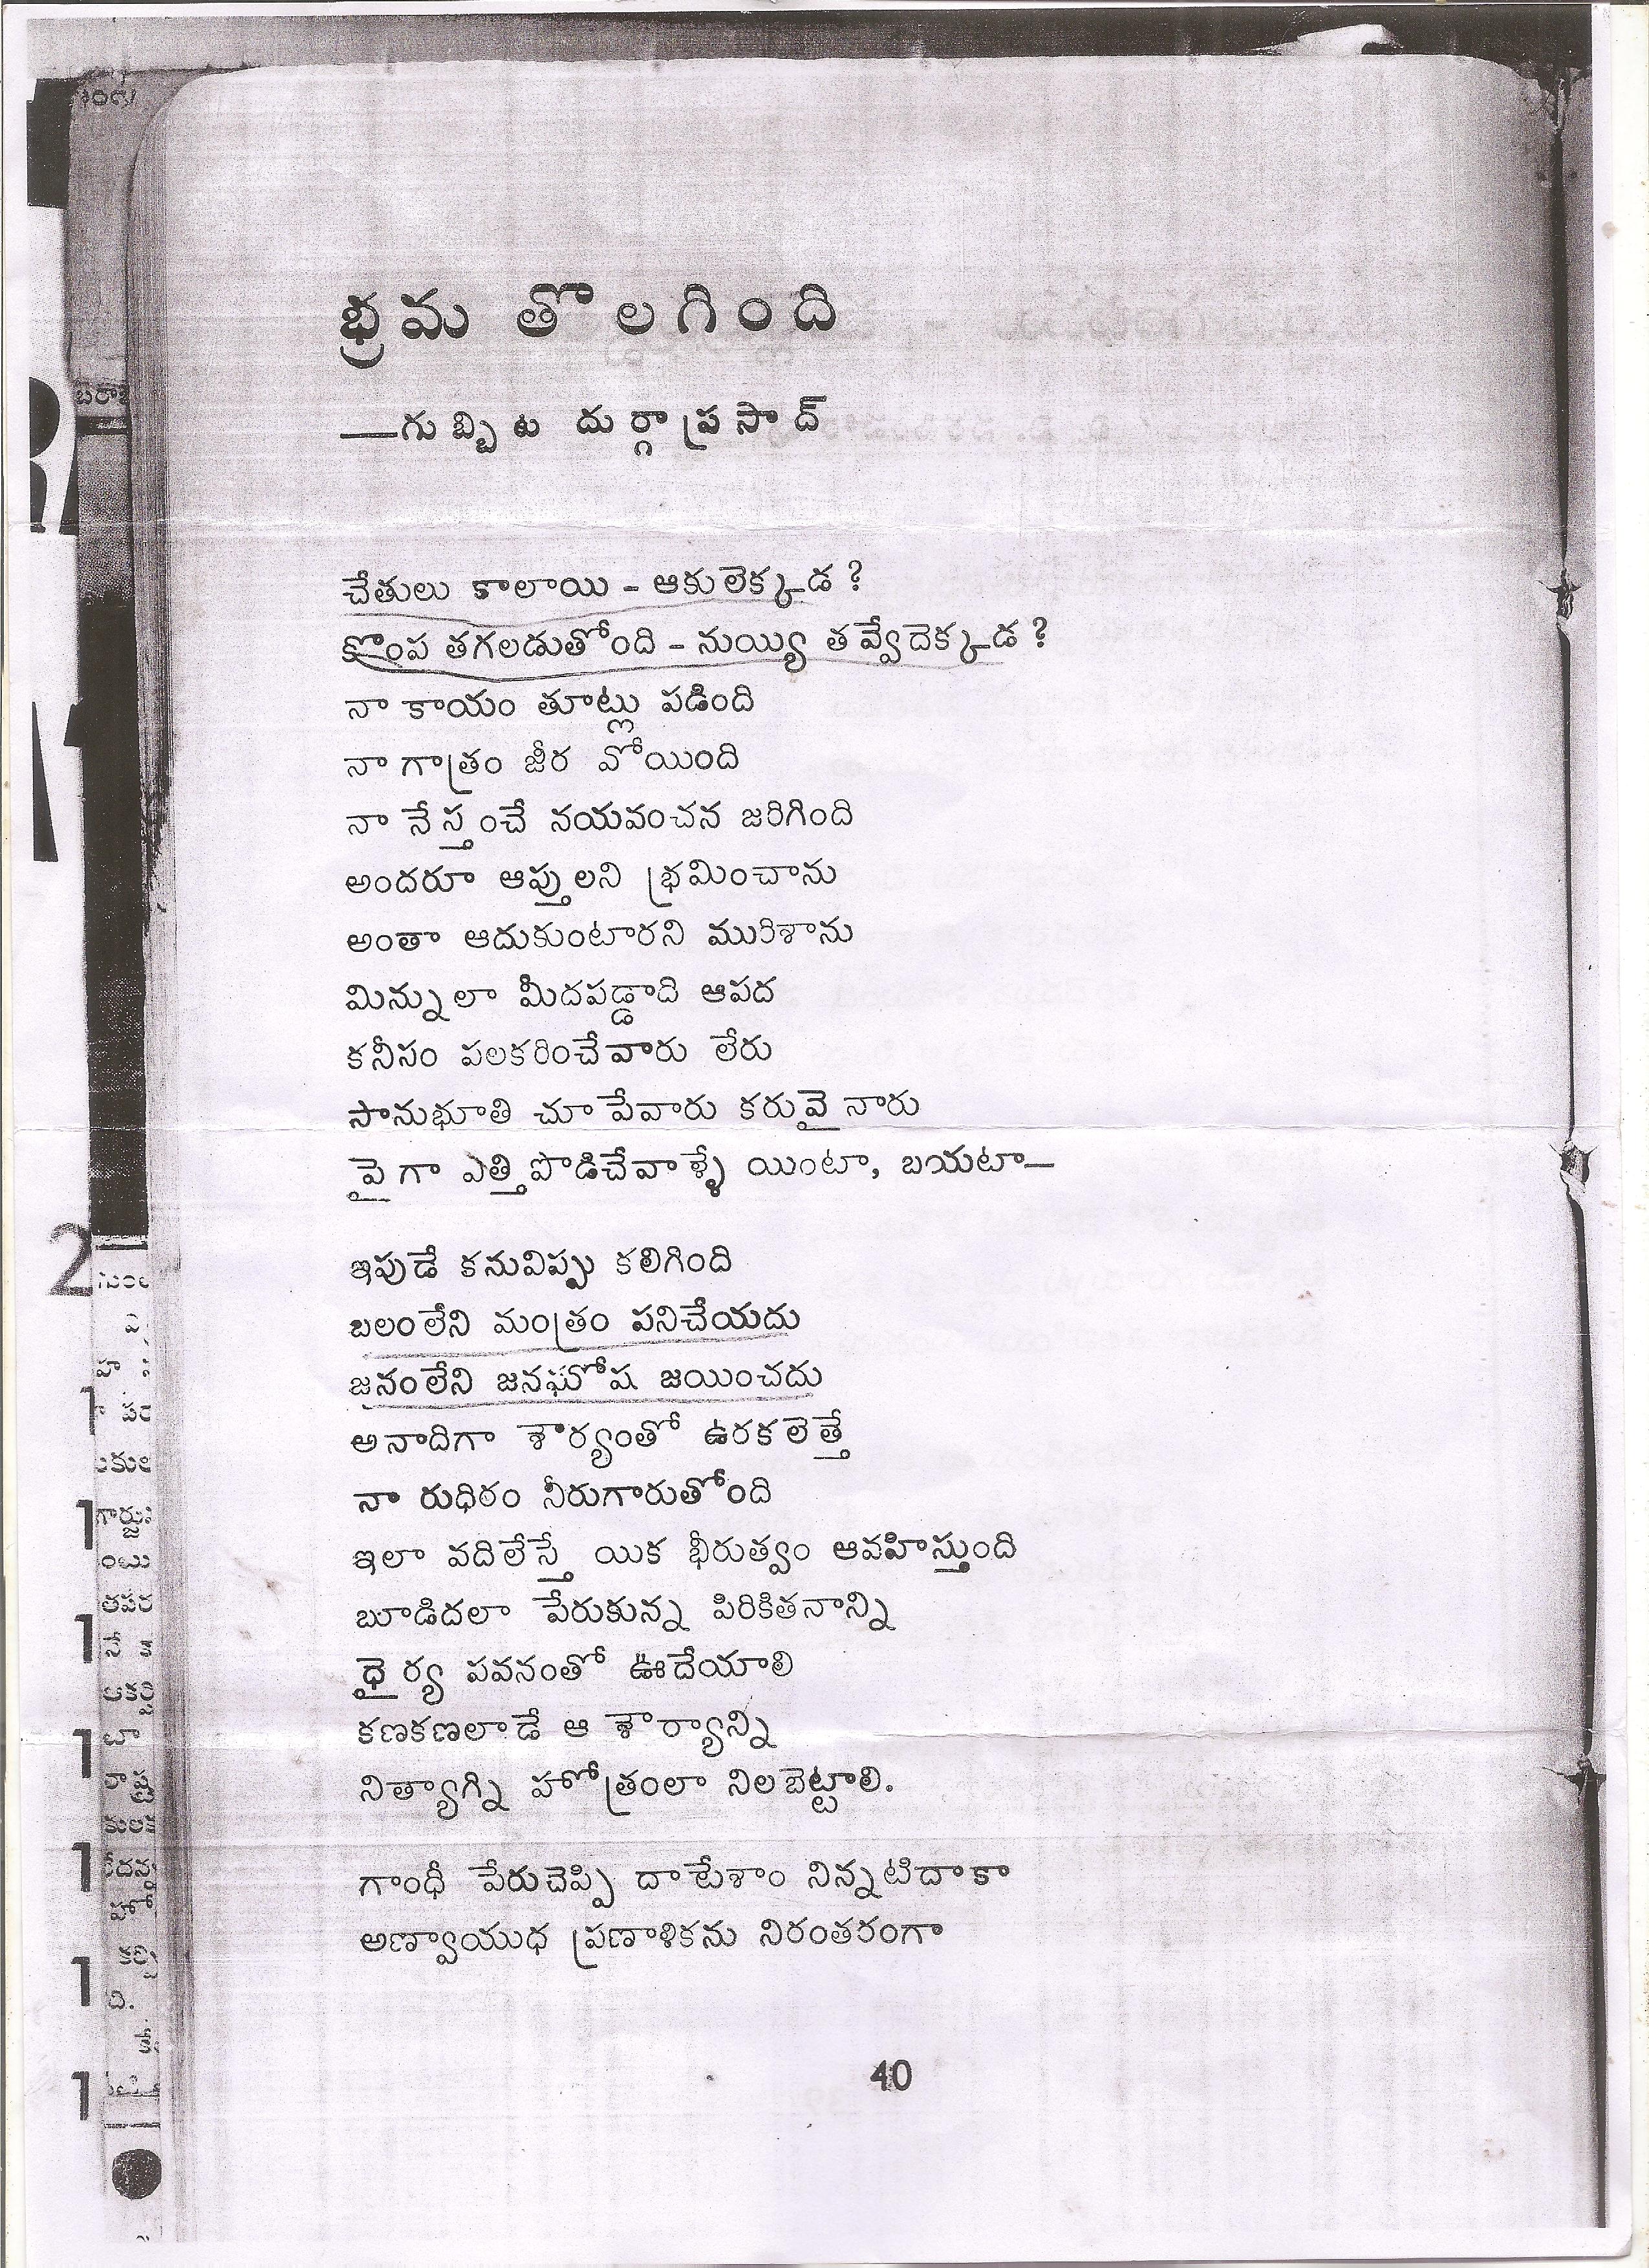 భ్రమ తొలగింది
—గుబ్బిట దుర్గాప్రసాద్
చేతులు కాలాయి - ఆకులెక్కడ ?
కొంప తగలడుతోంది - నుయ్యి తవ్వేదెక్కడ ?
నా కాయం తూట్లు పడింది
నా గాత్రం జీర వోయింది
నా నేస్తంచే నయవంచన జరిగింది
అందరూ ఆప్తులని భ్రమించాను
అంతా ఆదుకుంటారని మురిశాను
మిన్నులా మీదపడ్డాది ఆపద
కనీసం పలకరించేవారు లేరు
సానుభూతి చూపేవారు కరువైనారు
పైగా ఎత్తిపొడిచేవాళ్ళే యింటా, బయటా—
ఇపుడే కనువిప్పు కలిగింది
బలంలేని మంత్రం పనిచేయదు
జనంలేని జనఘోష జయించదు
అనాదిగా శౌర్యంతో ఉరకలెత్తే
నా రుధిరం నీరుగారుతోంది
ఇలా వదిలేస్తే యిక భీరుత్వం ఆవహిస్తుంది
బూడిదలా పేరుకున్న పిరికితనాన్ని
ధైర్య పవనంతో ఊదేయాలి
కణకణలాడే ఆ శౌర్యాన్ని
నిత్యాగ్ని హోత్రంలా నిలబెట్టాలి.
గాంధీ పేరుచెప్పి దాటేశాం నిన్నటిదాకా
అణ్వాయుధ ప్రణాళికను నిరంతరంగా
40